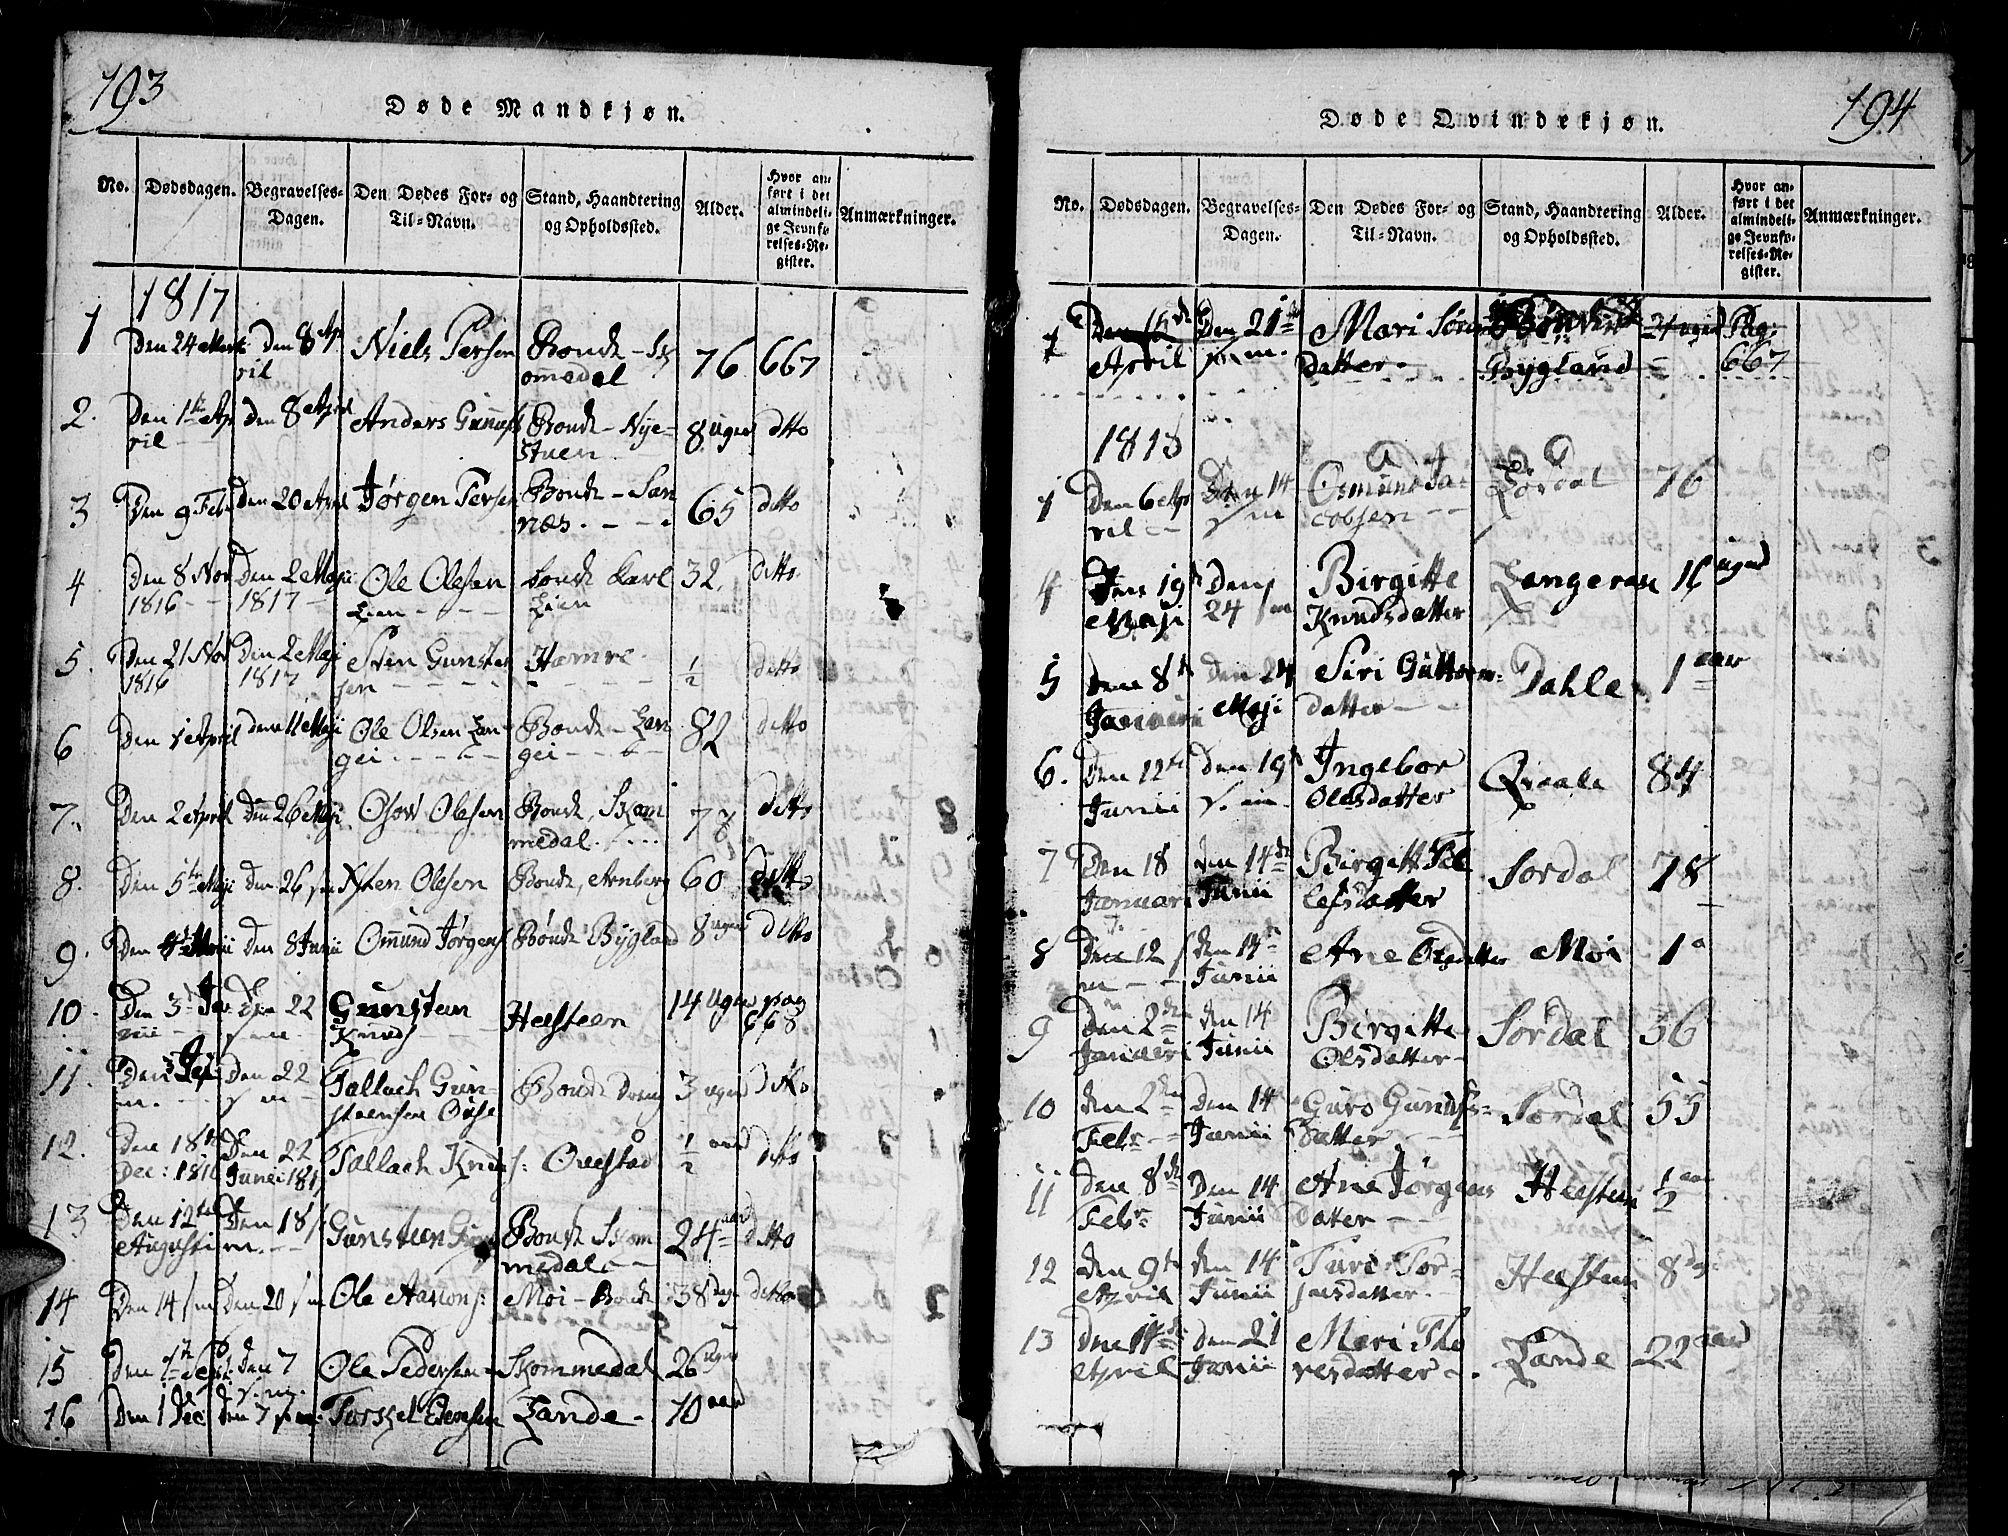 193
Døde Mandkjøn.
No. Dødsdagen. Begravelses-Dagen. Den Dødes For- og Til-Navn. Stand, Haandtering og Opholdssted. Alder. Hvor anført i det almindelige Jevnførelses-Register. Anmærkninger.
1817
1 Den 24 Marti den 8 April Niels Persen Bonde - 76 667
2. Den 1te April den 8 April Anders Bonde - Nyestuen 8 Uger dtto
3 Den 9 Feb. den 20 April Jørgen Persen Bonde - Sannæs 65 ditto
4 Den 8 Nov 1816 Den 2 Maji 1817 Ole Olesen Lien Bonde Karl Lien 32 ditto
5. Den 21 Nov 1816 Den 2 Maji 1817 Sven Gunstensen Hamre ½ ditto
6 Den 1 April den 11 Maji Ole Olsen Langei Bonde - Langei 82 ditto
7. Den 2 April Den 26 Maji Osow Olesen Bonde, Skommedal 78 ditto
8. Den 5te Maji Den 26 sm Olesen Bonde, Arnberg 60 ditto
9. Den Den 8 Junii Omund Jørgens Bonde Bygland 8 uger ditto
10. Den 3 22 sm Gunsteen Knuds Heesteen 14 Uger pag 668
11. Den 22 sm Tallach Gunsteensen Bonde Dreng 3 uger ditto
12. Den 18te Dec: 1816 Den 22 Junii 1817 Tallach Knuds: Ovestad ½ aar ditto
13 Den 12te Augusti Den 18 sm. Gunsteen Bonde Skommedal 24 aar ditto
14 Den 14 sm Den 20 sm Ole Aanons: Moi - Bonde 38 ditto
15 Den Sept. Den 7 s.m. Ole Pedersen Skommedal 26 uger
16 Den 1 Dec den 7 sm. Evensen Lande - 70 aar
194
Døde Qvindekjøn.
No. Dødsdagen. Begravelses-Dagen. Den Dødes For- og Til-Navn. Stand, Haandtering og Opholdssted. Alder. Hvor anført i det almindelige Jevnførelses-Register. Anmærkninger.
Den April Den 21 s.m. Mari datter Bygland Pag: 667
1818
1 Den 6 April Den 14 sm Osmund Jacobsen 76
4 Den 19 Maji Den 24 sm Birgitte Knudsdatter Langerau 16 uger
5 Den 8de Januari den 24 Maji Siri Guttormsdatter Dahle 1 aar
6. Den 12te Junii den 19 s.m. Ingebor Olesdatter Qvaale 84
7 Den 18 Januari den 14de Junii Birgitt Tellefsdatter Sordal 78
8 Den 12 sm den 14 Junii Ane Olsdatter Moi 1 a
9 Den 2den Januari den 14 Junii Birgitte Olsdatter Sordal 56
10 den 2den Febr den 14 Junii Guro Gunufsdatter Sordal 55
11 Den 8de Febr Den 14 Junii Ane Jørgensdatter Heesteen ½ aar
12 den 9de April den 14 Junii Turi Heesteen 8 dage
13 den 14de April den 21 Junii Mari Thoresdatter Lande 22 aar